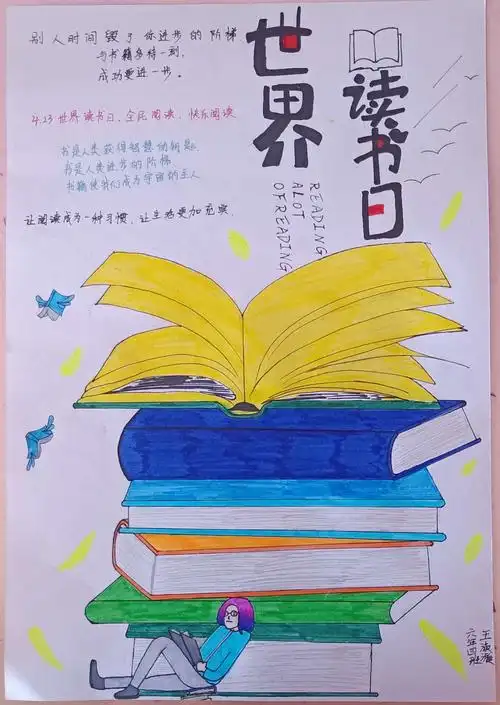 世界
读书日
READING
ALOT
OFREADING
别人时间毁了你进步的阶梯
与书籍多待一刻,
成功更进一步。
4.23世界读书日,全民阅读,快乐阅读
书是人类获得智慧的钥匙
书是人类进步的阶梯
书籍使我们成为宇宙的主人
让阅读成为一种习惯,让生活更加充实.
六年四班
王